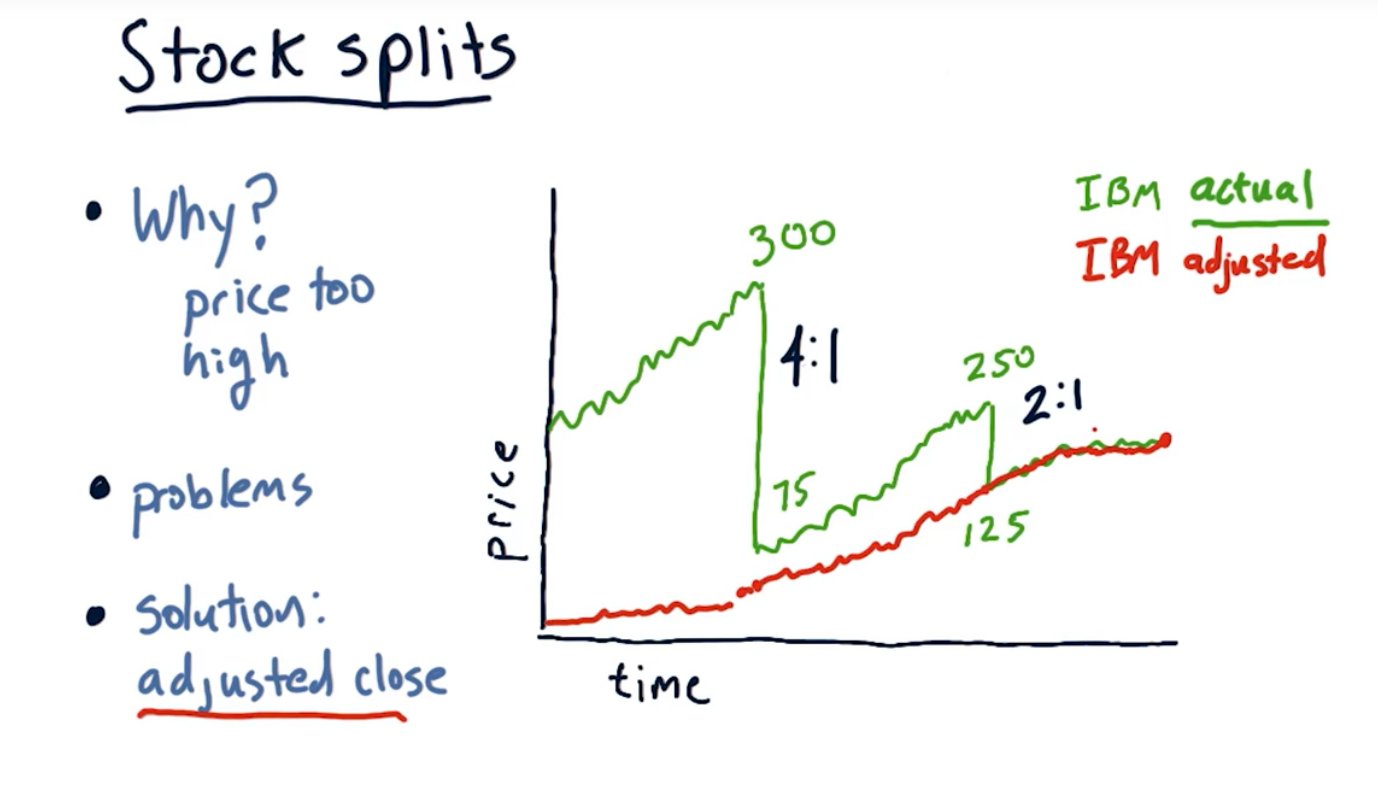 Stock splits
• Why?
price too
high
• problems
• solution:
adjusted close
IBM actual
IBM adjusted
300
4:1
75
250
2:1
125
price
time